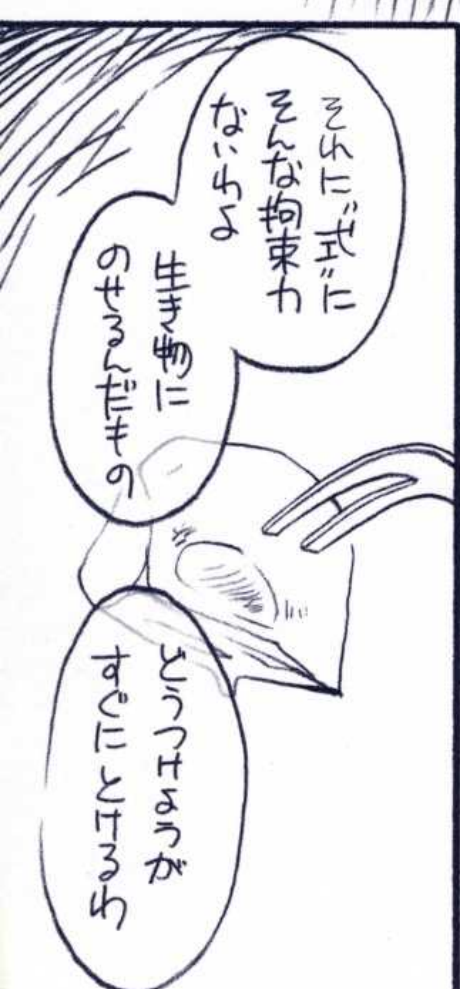 それに“式”に
そんな拘束力
ないわよ
生き物に
のせるんだもの
どうつけようが
すぐにとけるわ